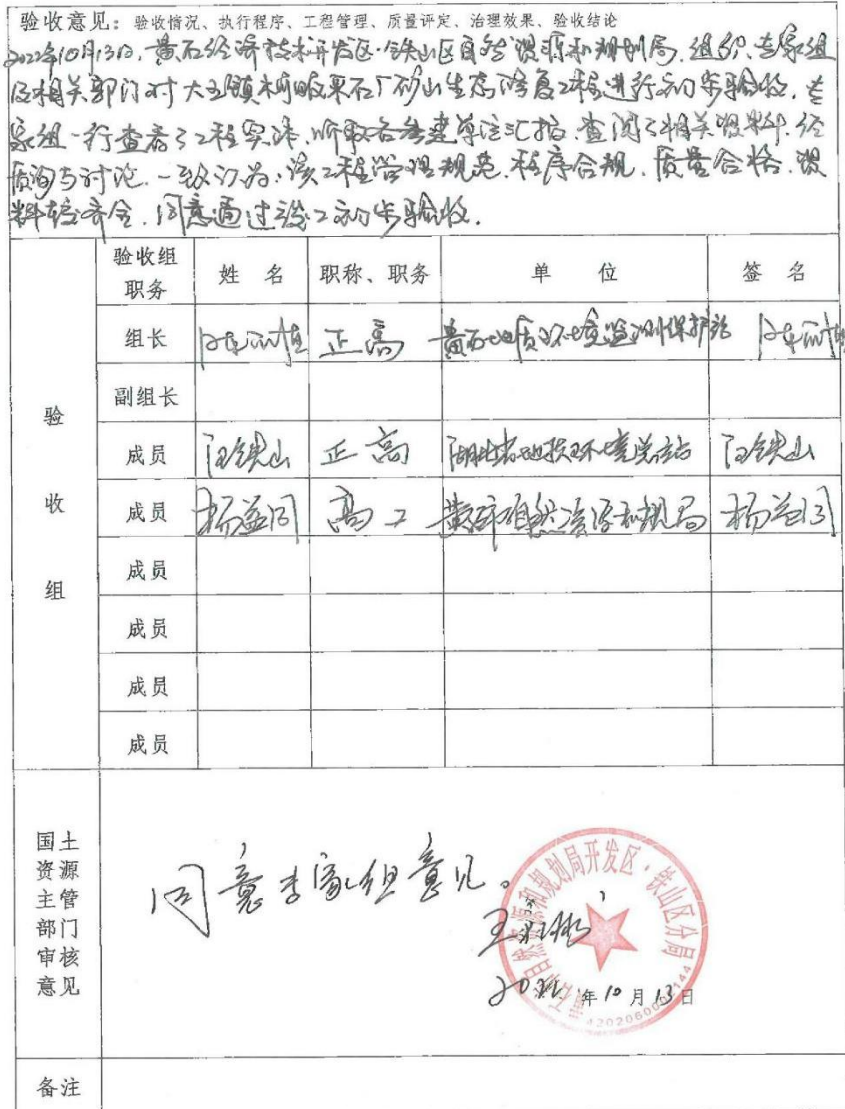 验收意见：验收情况、执行程序、工程管理、质量评定、治理效果、验收结论
2022年10月13日，黄石经济技术开发区·铁山区自然资源和规划局，组织专家组
及相关部门对大王镇柯畈采石厂矿山生态修复工程进行初步验收，专
家组一行查看了工程实体，听取各参建单位汇报，查阅了相关资料，经
质询与讨论，一致认为：该工程管理规范，程序合规，质量合格，资
料较齐全，同意通过竣工初步验收。
验收组职务 姓 名 职称、职务 单 位 签 名
验收组
组长 正高 黄石地质环境监测保护站
副组长
成员 汪铁山 正高 湖北省地质环境总站 汪铁山
成员 杨益同 高工 黄石市自然资源和规局 杨益同
成员
成员
成员
成员
国土资源主管部门审核意见
同意专家组意见。
黄石市自然资源和规划局开发区·铁山区分局
2022年10月13日
备注